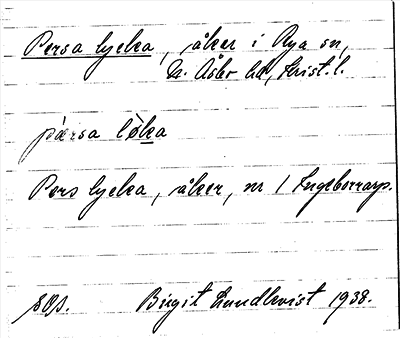 Persa lycka, åker i Rya sn,
N. Åsbo hd, Krist. l.
pærsa løka
Pers lycka, åker, nr 1 Ingeborrarp.
Birgit Lundkvist 1938.